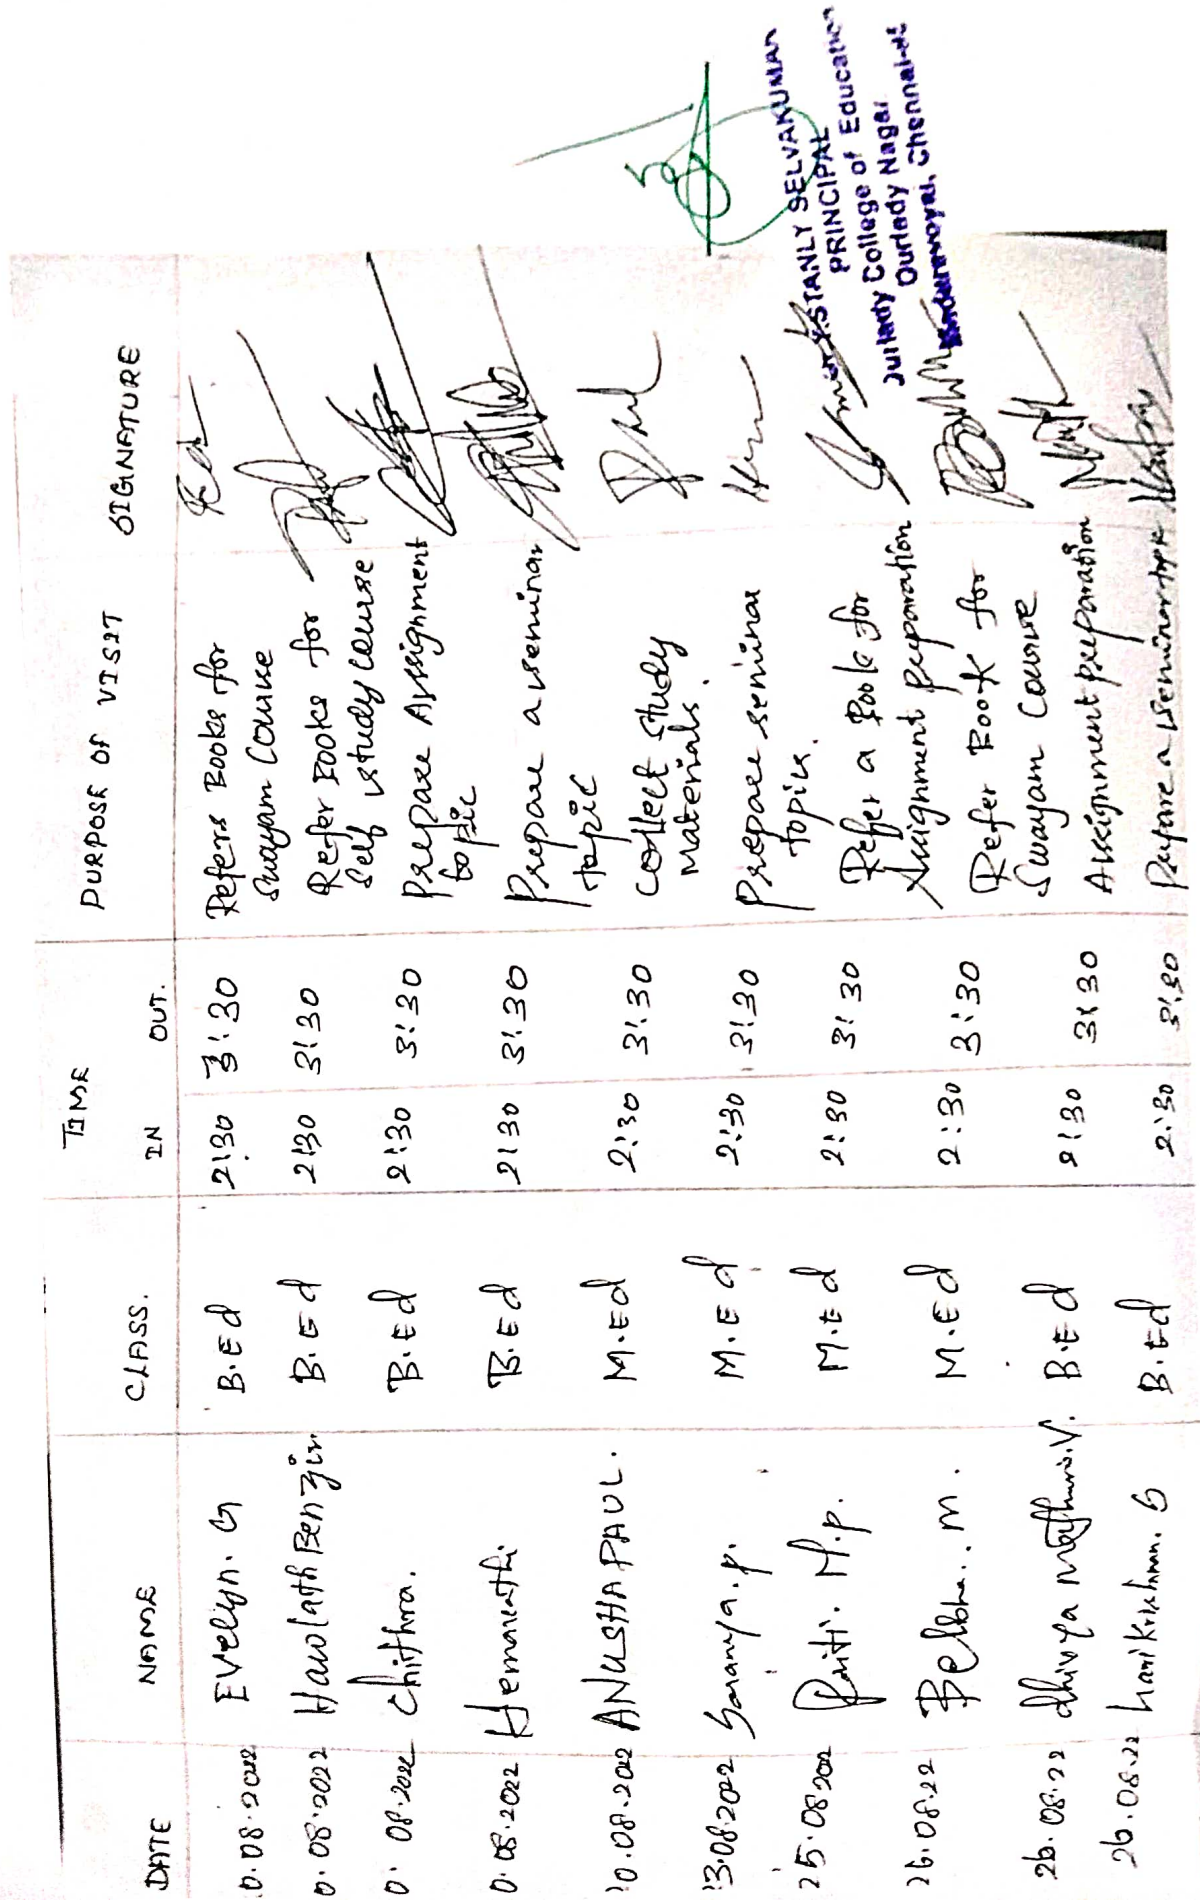 TIME
DATE NAME CLASS. IN OUT. PURPOSE OF VISIT SIGNATURE
0.08.2022 Evelyn. G B.Ed 2:30 3:30 Refers Books for
Swayam Course
0.08.2022 Hawlath Benzir B.Ed 2:30 3:30 Refer Books for
Self study course
0.08.2022 Chithra. B.Ed 2:30 3:30 Prepare Assignment
topic
0.08.2022 Hemavathi B.Ed 2:30 3:30 Prepare a seminar
topic
0.08.2022 ANUSHA PAUL. M.Ed 2:30 3:30 Collect study
Materials.
3.08.2022 Saranya.p. M.Ed 2:30 3:30 Prepare seminar
topics.
25.08.2022 M.p. M.Ed 2:30 3:30 Refer a Book for
Assignment preparation
26.08.22 M. M.Ed 2:30 3:30 Refer Book for
Swayam Course
26.08.22 dhivya Mathumi.V. B.Ed 2:30 3:30 Assignment preparation
26.08.22 harikrishnan. G B.Ed 2:30 3:30 Prepare a seminar topic
STANLY SELVAKUMAR
PRINCIPAL
Ourlady College of Education
Ourlady Nagar
Maduravoyal, Chennai